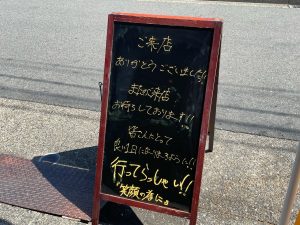 ご来店
ありがとうございました!!
またのご来店
お待ちしております!!
皆さんにとって
良い1日になりますように!!
行ってらっしゃい!!
笑顔の為に。